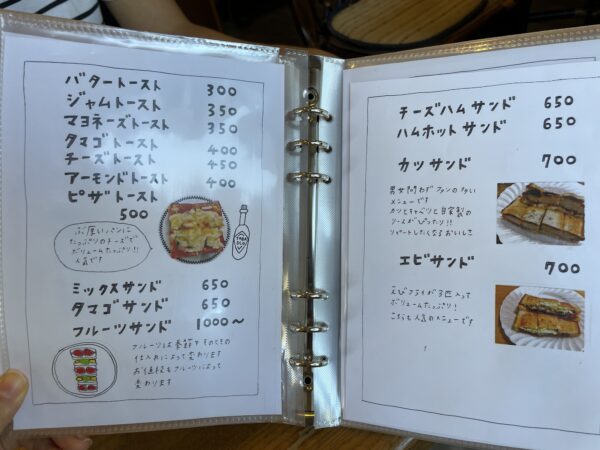 バタートースト 300
ジャムトースト 350
マヨネーズトースト 350
タマゴトースト 400
チーズトースト 450
アーモンドトースト 400
ピザトースト
500
ぶ厚いパンに
たっぷりのチーズで
ボリュームたっぷり!!
人気です
ミックスサンド 650
タマゴサンド 650
フルーツサンド 1000〜
フルーツは季節やそのときの
仕入れによって変わります
お値段もフルーツによって
変わります
チーズハムサンド 650
ハムホットサンド 650
カツサンド 700
男女問わずファンの多い
メニューです
カツとキャベツと自家製の
ソースがぴったり!!
リピートしたくなるおいしさ
エビサンド 700
えびフライが3匹入って
ボリュームたっぷり!
こちらも人気のメニューです